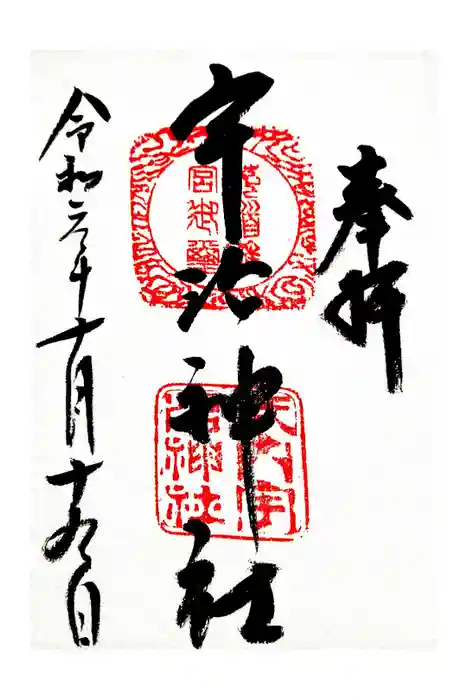 奉拝
宇治神社
菟道離
宮御璽
式内宇
治神社
令和二年十月十九日